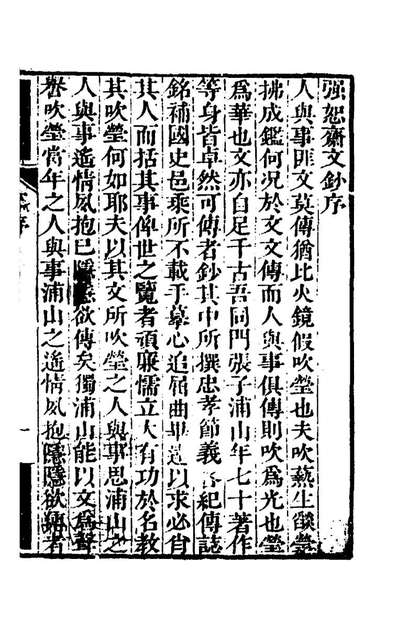 强恕齋文鈔序
人與事匪文莫傳猶比火鏡假吹瑩也夫吹爇生燄瑩
拂成鑑何况於文文傳而人與事俱傳則吹為光也瑩
為華也文亦自足千古吾同門張子浦山年七十著作
等身皆卓然可傳者鈔其中所撰忠孝節義各紀傳誌
銘補國史邑乘所不載于摹心追屈曲畢達以求必肖
其人而括其事俾世之覽者頑廉懦立大有功於名教
其吹瑩何如耶夫以其文所吹瑩之人與事思浦山之
人與事遙情夙抱已隱欲傳矣獨浦山能以文為聲
譽吹瑩當年之人與事浦山之遙情夙抱隱隱欲者
序
一